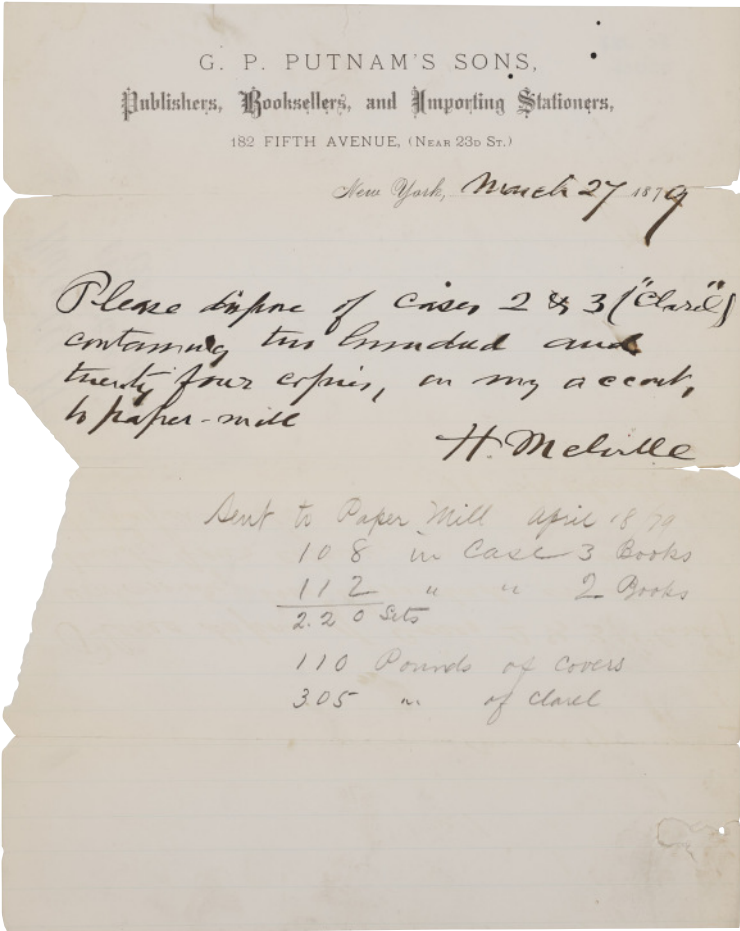 G. P. PUTNAM'S SONS,
Publishers, Booksellers, and Importing Stationers,
182 FIFTH AVENUE, (NEAR 23D ST.)
New York, March 27 1879
Please dispose of cases 2 & 3 ("Clarel")
containing two hundred and
twenty four copies, on my account,
to paper-mill
H. Melville
Sent to Paper Mill April 18/79
108 in Case 3 Books
112 " " 2 Books
2.20 Sets
110 Pounds of Covers
305 " of Clarel